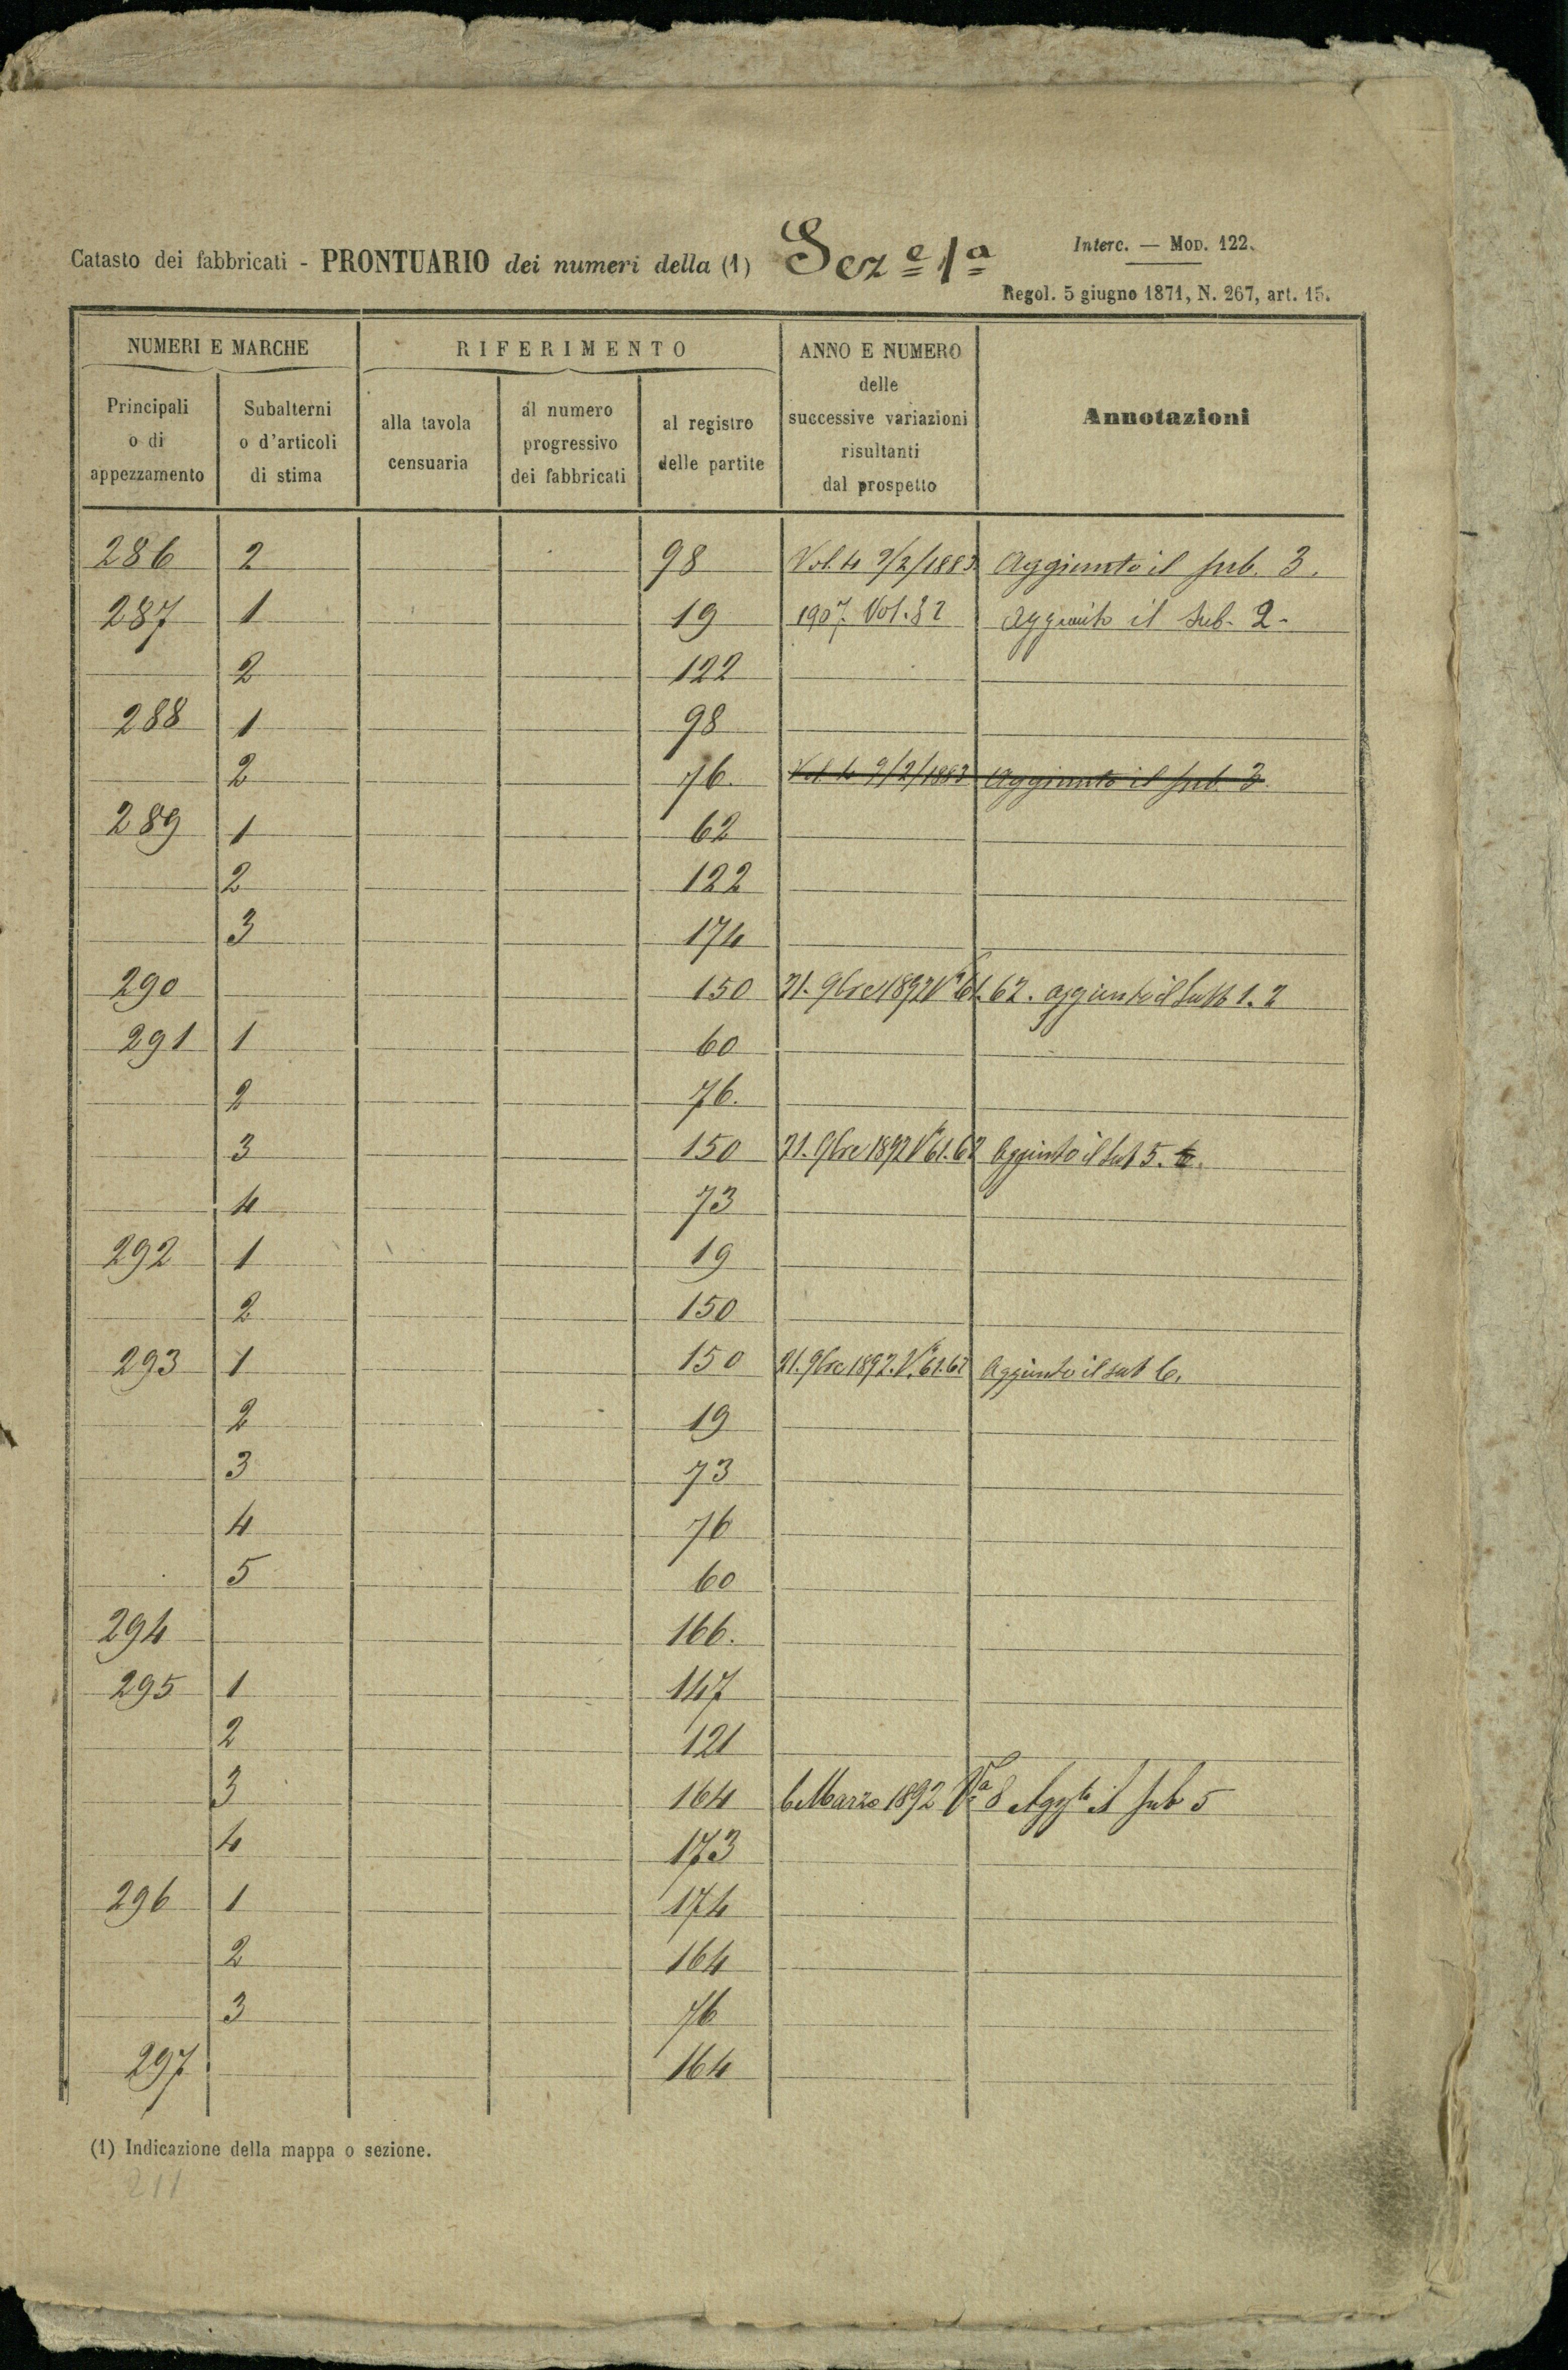 Catasto dei fabbricati - PRONTUARIO dei numeri della (1) Sez.e 1a
Interc. — Mod. 122.
Regol. 5 giugno 1871, N. 267, art. 15.
NUMERI E MARCHE
RIFERIMENTO
ANNO E NUMERO
delle
successive variazioni
risultanti
dal prospetto
Annotazioni
Principali
o di
appezzamento
Subalterni
o d'articoli
di stima
alla tavola
censuaria
al numero
progressivo
dei fabbricati
al registro
delle partite
286 2 98 Vol. 4 9/2/1883 Aggiunto il sub. 3.
287 1 19 1907. Vol. 82 Aggiunto il sub. 2.
2 122
288 1 98
2 76. Vol. 4 9/2/1883 Aggiunto il sub. 3.
289 1 62
2 122
3 174
290 150 21. 9bre 1892 Va 61.62. aggiunto il sub 1. 2
291 1 60
2 76.
3 150 21. 9bre 1892 Va 61.62 Aggiunto il sub 5.
4 73
292 1 19
2 150
293 1 150 21. 9bre 1892. Va 61.62 Aggiunto il sub 6.
2 19
3 73
4 76
5 60
294 166.
295 1 147
2 121
3 164 6 Marzo 1892 Va 8 Aggto il sub 5
4 173
296 1 174
2 164
3 76
297 164
(1) Indicazione della mappa o sezione.
211